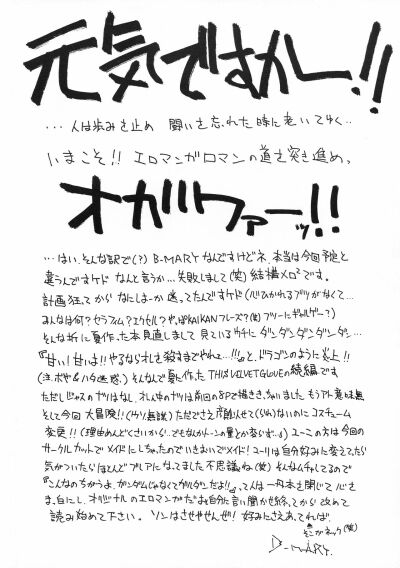 元気ですかー!!
…人は歩みを止め 闘いを忘れた時に老いてゆく…
いまこそ!! エロマンガロマンの道を突き進め、
オガワァーッ!!
…はい、そんな訳で(?) B-MARYなんですけどネ、本当は今回予定と
違うんですケド なんと言うか…失敗しまして(笑) 結構メロ²です。
計画狂ってから なにしよーか迷ってたんですケド(心ひかれるブツがなくて…
みんなは何? セラフィム? エクセル? やっぱKAIKANフレーズ?(笑) ブツーにギャルゲー?)
そんな折に夏作った本見直しまして 見ているウチに ダンダンダンダンダン…
『甘い! 甘いよ!! やるならオレを殺すまでやれェ…!!!』と、ドラゴンのように炎上!!
(注、ボヤ&ハタ迷惑) そんなんで夏に作った THIS VELVET GLOVEの続編です
ただしじゅのガリはなし、オレん中のガリは前回の8Pで描ききっちゃいました もうアト 意味無
そして今回 大冒険!!(ウソ無謀) ただでさえ
のにコスチューム
変更!! (理由めんどくさいから!、でもなんかトーンの量とか変らず…。) ユーこの方は今回の
サークルカットで メイドにしちゃったのでいさぎよくてメイド! ユーリは自分好みに変えてたら
気がついたらほとんどブルアになってました 不思議ね(笑) そんなムチャしてるので
『こんなのちがうよ、ガンダムじゃなくてガルダンだよ!!』って人は一旦本を閉じて 心を
白にし、オリジナルのエロマンガだよォと自分に言い聞かせ終ってから 改めて
読み始めて下さい。ソンはさせやせんぜ! 好みにさえあってれば、
そこがネック(笑)
B-MARY